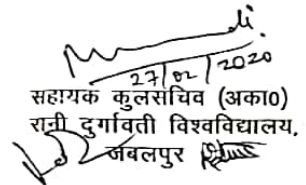 27/02/2020
सहायक कुलसचिव (अका0)
रानी दुर्गावती विश्वविद्यालय,
जबलपुर